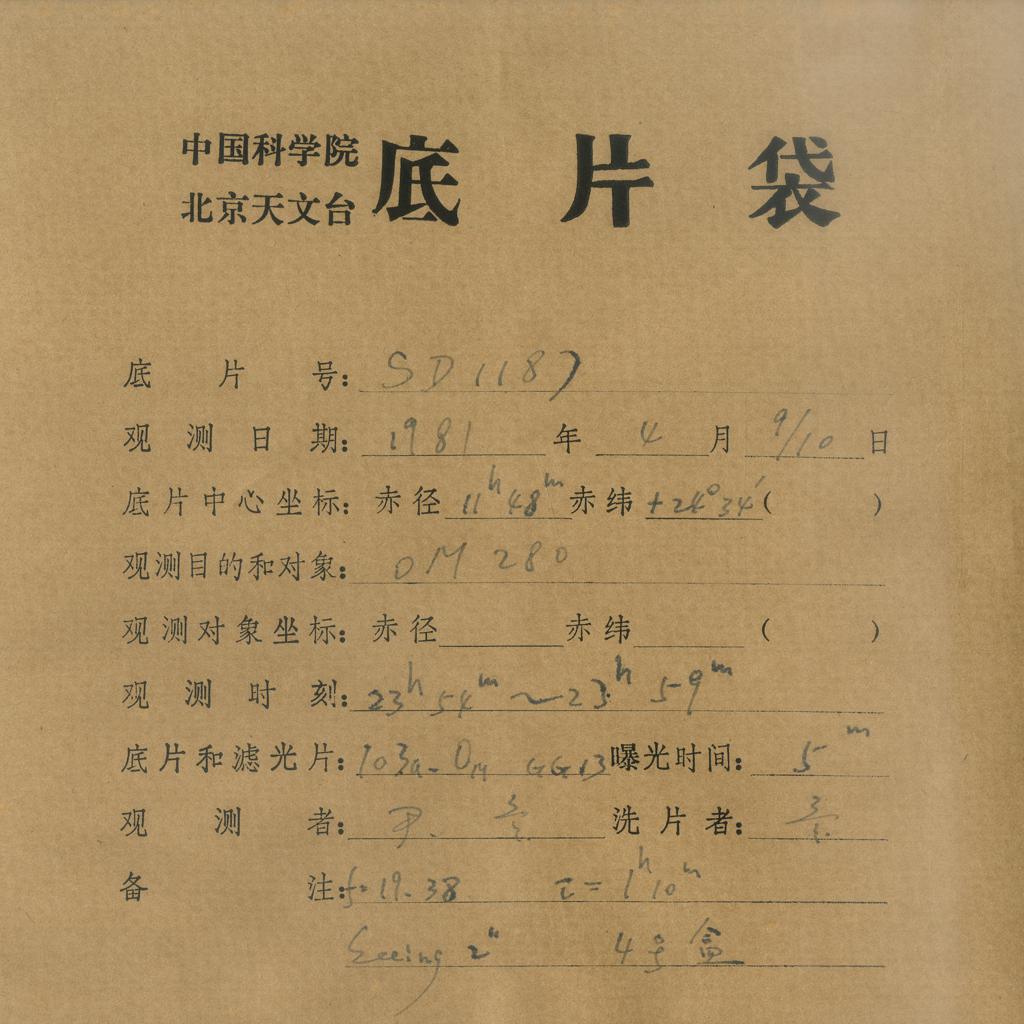 中国科学院
北京天文台 底片袋
底片号: SD 1187
观测日期: 1981 年 4 月 9/10 日
底片中心坐标: 赤径 11h 48m 赤纬 +24°34′ ( )
观测目的和对象: OM 280
观测对象坐标: 赤径 赤纬 ( )
观测时刻: 23h 54m ~ 23h 59m
底片和滤光片: 103a-O GG13 曝光时间: 5m
观测者: 尹. 洗片者:
备注: f=19.38 τ= 1h 10m
Seeing 2" 4号盒